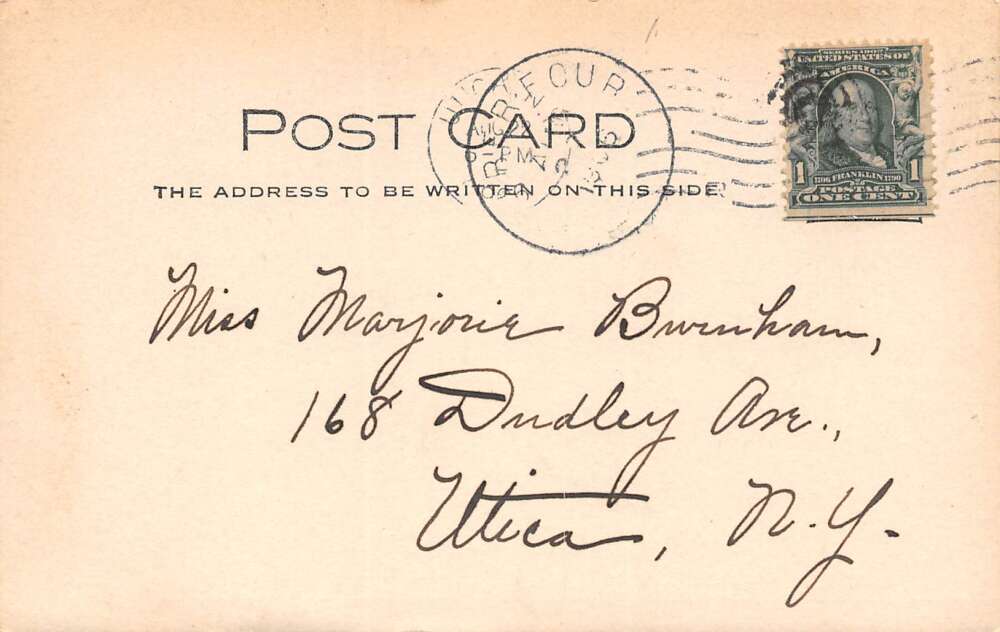 POST CARD
THE ADDRESS TO BE WRITTEN ON THIS SIDE
SERIES 1902
UNITED STATES OF
AMERICA
1
1706 FRANKLIN 1790
1
POSTAGE
ONE CENT
PM
Miss Marjorie Burnham,
168 Dudley Ave.,
Utica, N.Y.